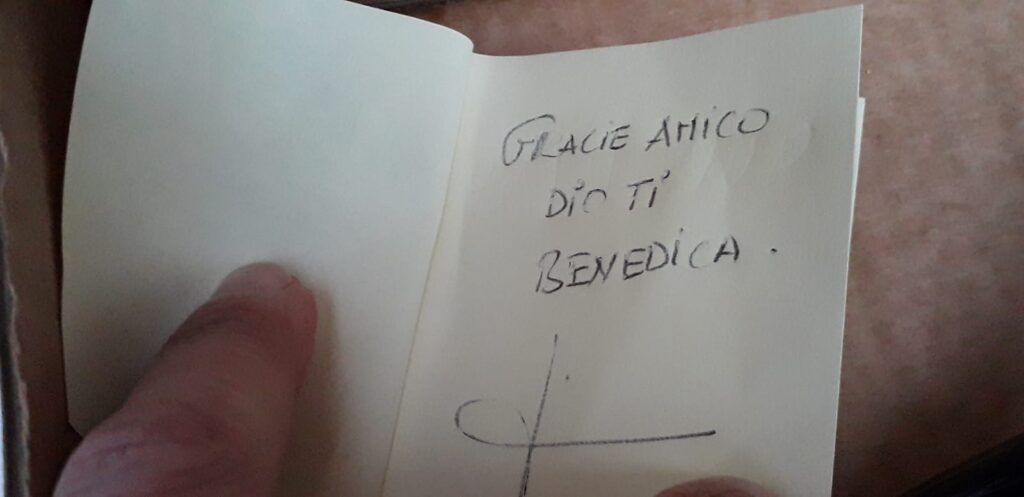 GRACIE AMICO
DIO TI
BENEDICA.